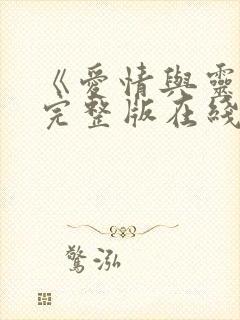 《愛情與靈
完整版在綫
驚泓